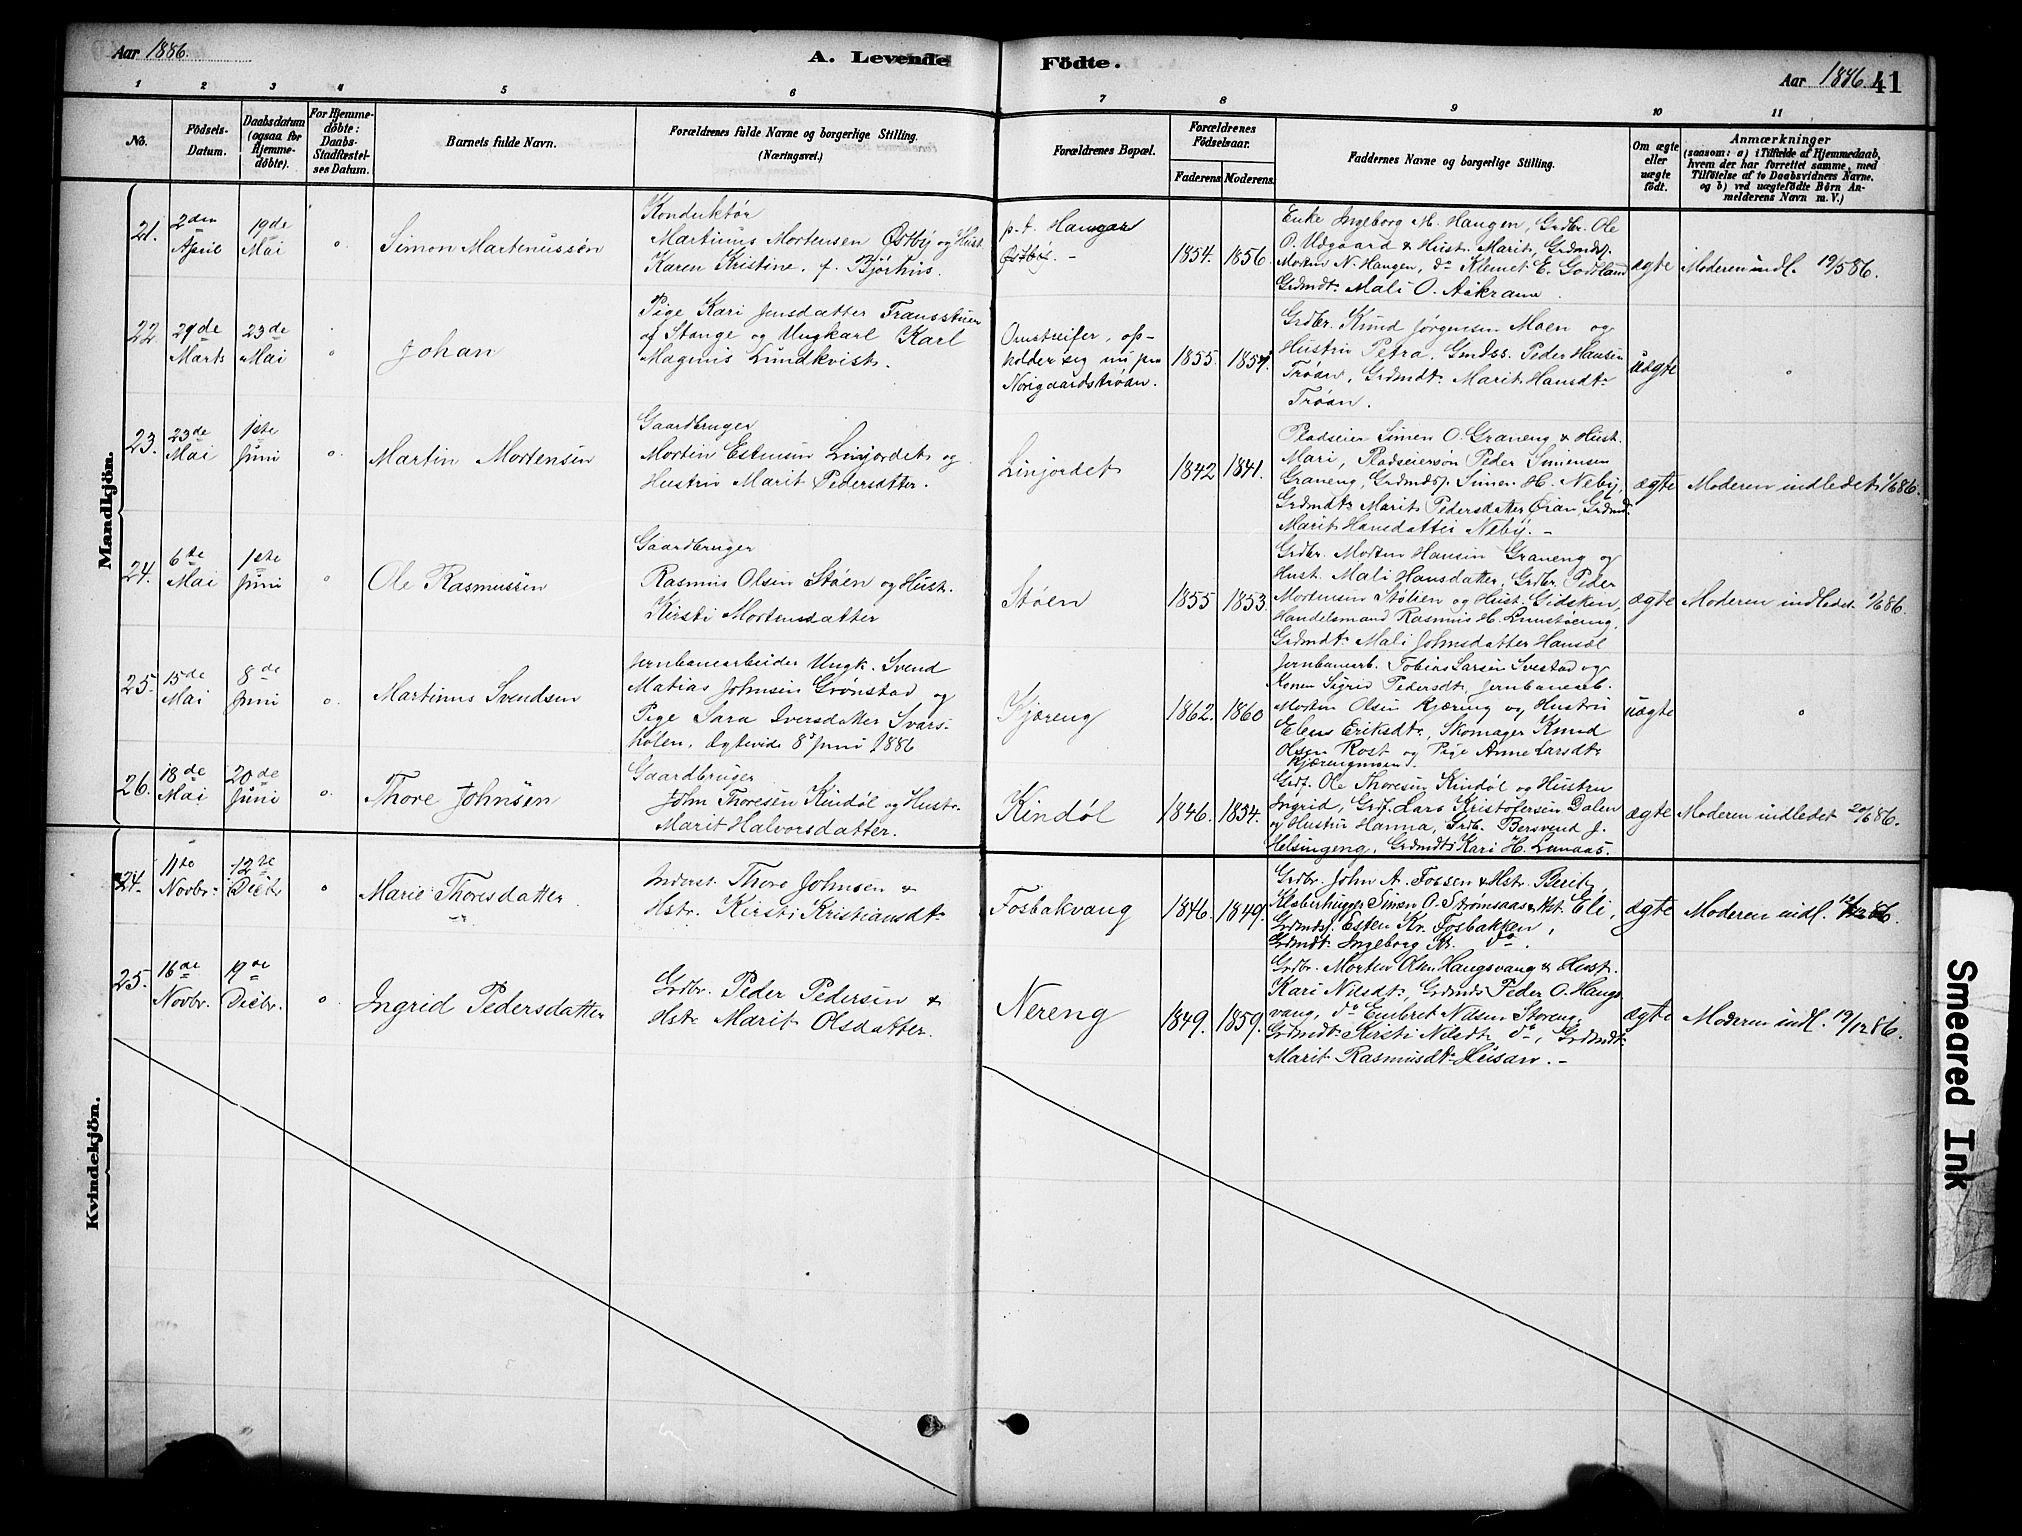 Aar 1886.
A. Levende Födte.
Aar 1886.
41
1 2 3 4 5 6 7 8 9 10 11
No.
Födsels-
Datum.
Daabsdatum
(ogsaa for
Hjemme-
döbte).
For Hjemme-
döbte:
Daabs-
Stadfæstel-
ses Datum.
Barnets fulde Navn.
Forældrenes fulde Navne og borgerlige Stilling.
(Næringsvei.)
Forældrenes Bopæl.
Forældrenes
Födselsaar.
Faderens.
Moderens.
Faddernes Navne og borgerlige Stilling.
Om ægte
eller
uægte
födt.
Anmærkninger
(saasom: a) i Tilfælde af Hjemmedaab,
hvem der har forrettet samme, med
Tilföielse af to Daabsvidners Navne,
og b) ved uægtefödte Börn An-
melderens Navn m. V.)
Mandkjön.
21.
2den
April
19de
Mai
Simon Martinussen
Konduktør
Martinus Mortensen Østby og Hust.
Karen Kristine, f. Bjørhus.
p.t. Haugen
Østby.
1854. 1856.
Enke Ingeborg M. Haugen, Grdbr. Ole
O. Udgaard & Hust. Marit, Grdmdsp.
Morten N. Haugen, do Klemet E. Godtland
Grdmdt. Mali O. Aakrann.
ægte
Moderen indl. 19/5 86.
22.
29de
Marts
23de
Mai
Johan
Pige Kari Jensdatter Fransstuen
af Stange og Ungkarl Karl
Magnus Lundkvist.
Omstreifer, op-
holder sig nu paa
Norigaardstrøen.
1855. 1857.
Grdbr. Knud Jørgensen Moen og
Hustru Petra, Gmdss. Peder Hansen
Trøan, Grdmdt. Marit Hansdt.
Trøan.
uægte
23.
23de
Mai
1ste
Juni
Martin Mortensen
Gaardbruger
Morten Estensen Linjordet og
Hustru Marit Pedersdatter.
Linjordet
1842 1841.
Pladseier Simen O. Graneng & Hust.
Mari, Pladseiersøn Peder Simensen
Graneng, Grdmdsp. Simen H. Neby,
Grdmdt. Marit Pedersdatter Øian, Grdmd.
Marit Hansdatter Neby.
ægte
Moderen indledet 1/6 86.
24.
6te
Mai
1ste
Juni
Ole Rasmussen
Gaardbruger
Rasmus Olsen Støen og Hust.
Kirsti Mortensdatter
Støen
1855 1853.
Grdbr. Morten Hansen Graneng og
Hust. Mali Hansdatter, Grdbr. Peder
Mortensen Stølien og Hust. Gidsken,
Handelsmand Rasmus H. Lunstveng,
Grdmdt. Mali Johnsdatter Hansøl
ægte
Moderen indledet 1/6 86.
25.
15de
Mai
8de
Juni
Martinus Svendsen
Jernbanearbeider Ungk. Svend
Matias Johnsen Grønstad og
Pige Sara Iversdatter Svars-
hølen, Ægteviede 8de Juni 1886
Kjæreng
1862. 1860
Jernbanearb. Tobias Larsen Svestad og
Konen Sigrid Pedersdt., Jernbanearb.
Morten Olsen Kjæreng og Hustru
Elens Eriksdt., Skomager Knud
Olsen Rost og Pige Anne Larsdt.
Kjærengmoen.
uægte
26.
18de
Mai
20de
Juni
Thore Johnsen
Gaardbruger
John Thoresen Kindøl og Hust.
Marit Halvorsdatter.
Kindøl
1846. 1854.
Grdf. Ole Thoresen Kindøl og Hustru
Ingrid, Grdf. Lars Kristofersen Dalen
og Hustru Hanna, Grdb. Bersvend J.
Helsingeng, Grdmdt. Kari H. Lunaas.
ægte
Moderen indledet 20/6 86.
Kvindekjön.
24.
11te
Novbr.
12te
Dicbr
Marie Thoresdatter
Inderst. Thore Johnsen &
Hstr. Kirsti Kristiansdt.
Fosbakvang
1846. 1849.
Grdbr. John A. Fossen & Hstr. Berit,
Klæberhugger Simen O. Strømsaas & Hst. Eli,
Grdmdsf. Esten Kr. Fosbakken,
Grdmdt. Ingeborg Kr. do.
ægte
Moderen indl. 12/12 86.
25.
16de
Novbr.
19de
Dicbr.
Ingrid Pedersdatter
Grdbr. Peder Pedersen &
Hstr. Marit Olsdatter.
Nereng
1849. 1859.
Grdbr. Morten Olsen Haugsvang & Hust.
Kari Nilsdt., Grdmds Peder O. Haugs
vang, do Embret Nilsen Storeng,
Grdmdt. Kirsti Nilsdt. do, Grdmdt.
Marit Rasmusdt. Husan.
ægte
Moderen indl. 19/12 86.
Smeared Ink